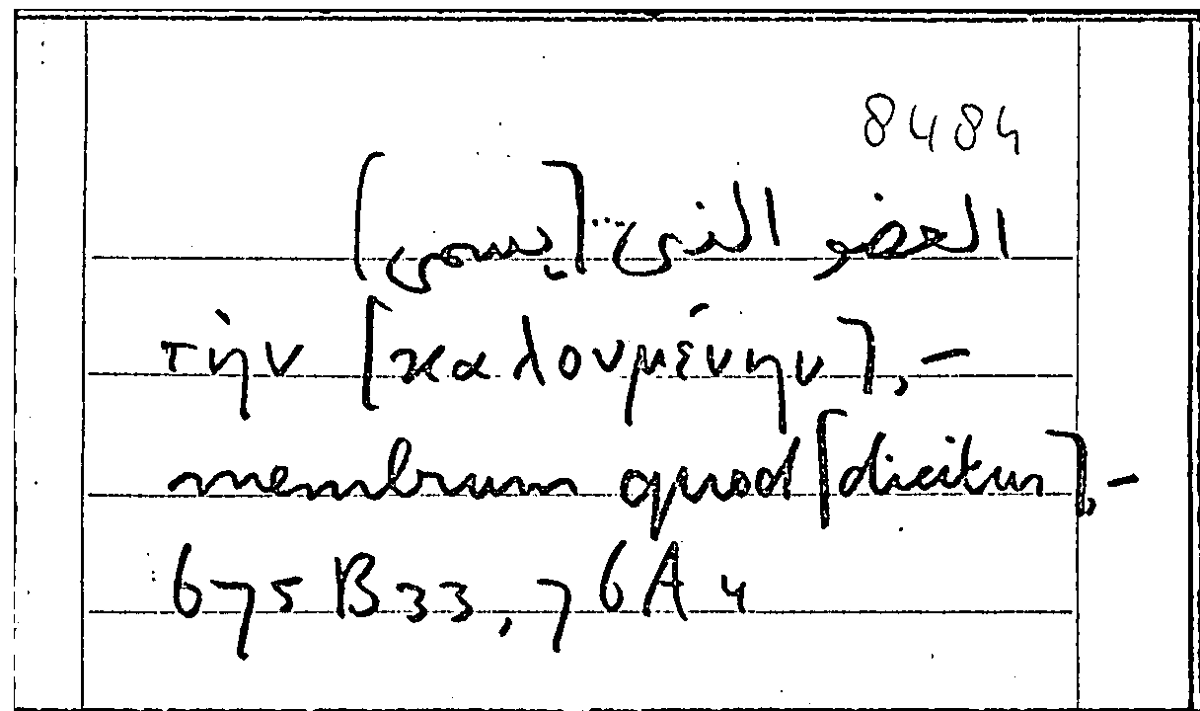 8484
العضو الذى...[يسمى]
τὴν [καλουμένην],–
membrum quod [dicitur],–
675B33, 76A4